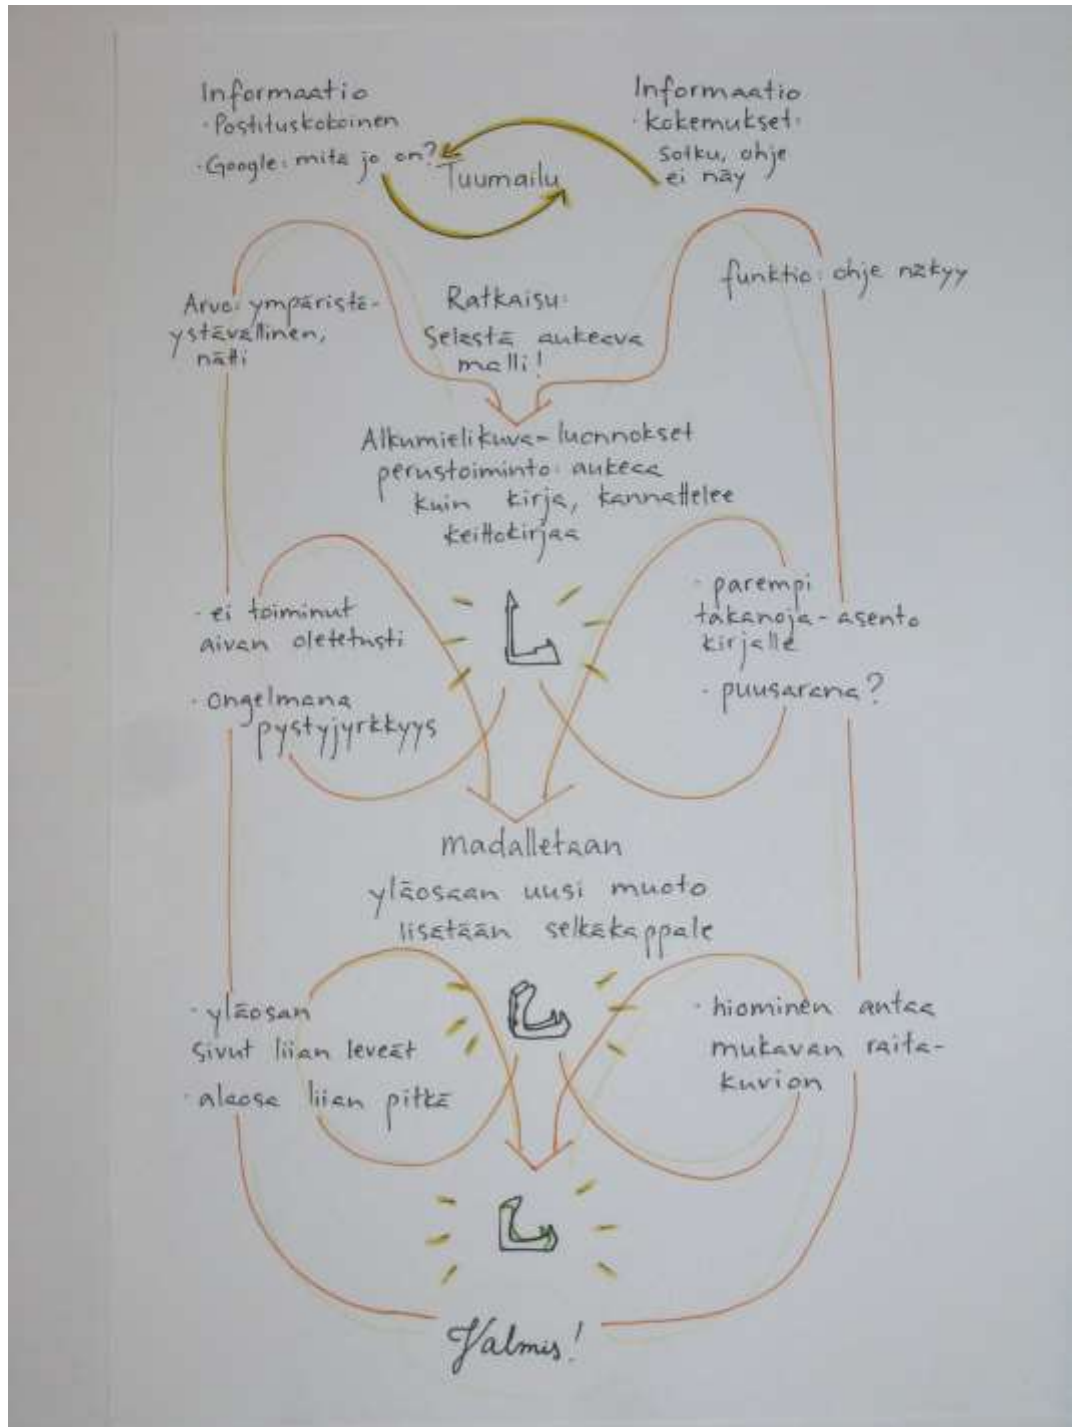 Informaatio
· Postituskokoinen
· Google: mitä jo on?
Informaatio
· kokemukset:
sotku, ohje
ei näy
Tuumailu
Arvo: ympäristö-
ystävällinen,
nätti
Ratkaisu:
Selästä aukeava
malli!
funktio: ohje näkyy
Alkumielikuva-luonnokset
perustoiminto: aukeaa
kuin kirja, kannattelee
keittokirjaa
· ei toiminut
aivan oletetusti
· ongelmana
pystyjyrkkyys
· parempi
takanoja-asento
kirjalle
· puusarana?
madalletaan
yläosaan uusi muoto
lisätään selkäkappale
· yläosan
sivut liian leveät
· alaosa liian pitkä
· hiominen antaa
mukavan raita-
kuvion
Valmis!